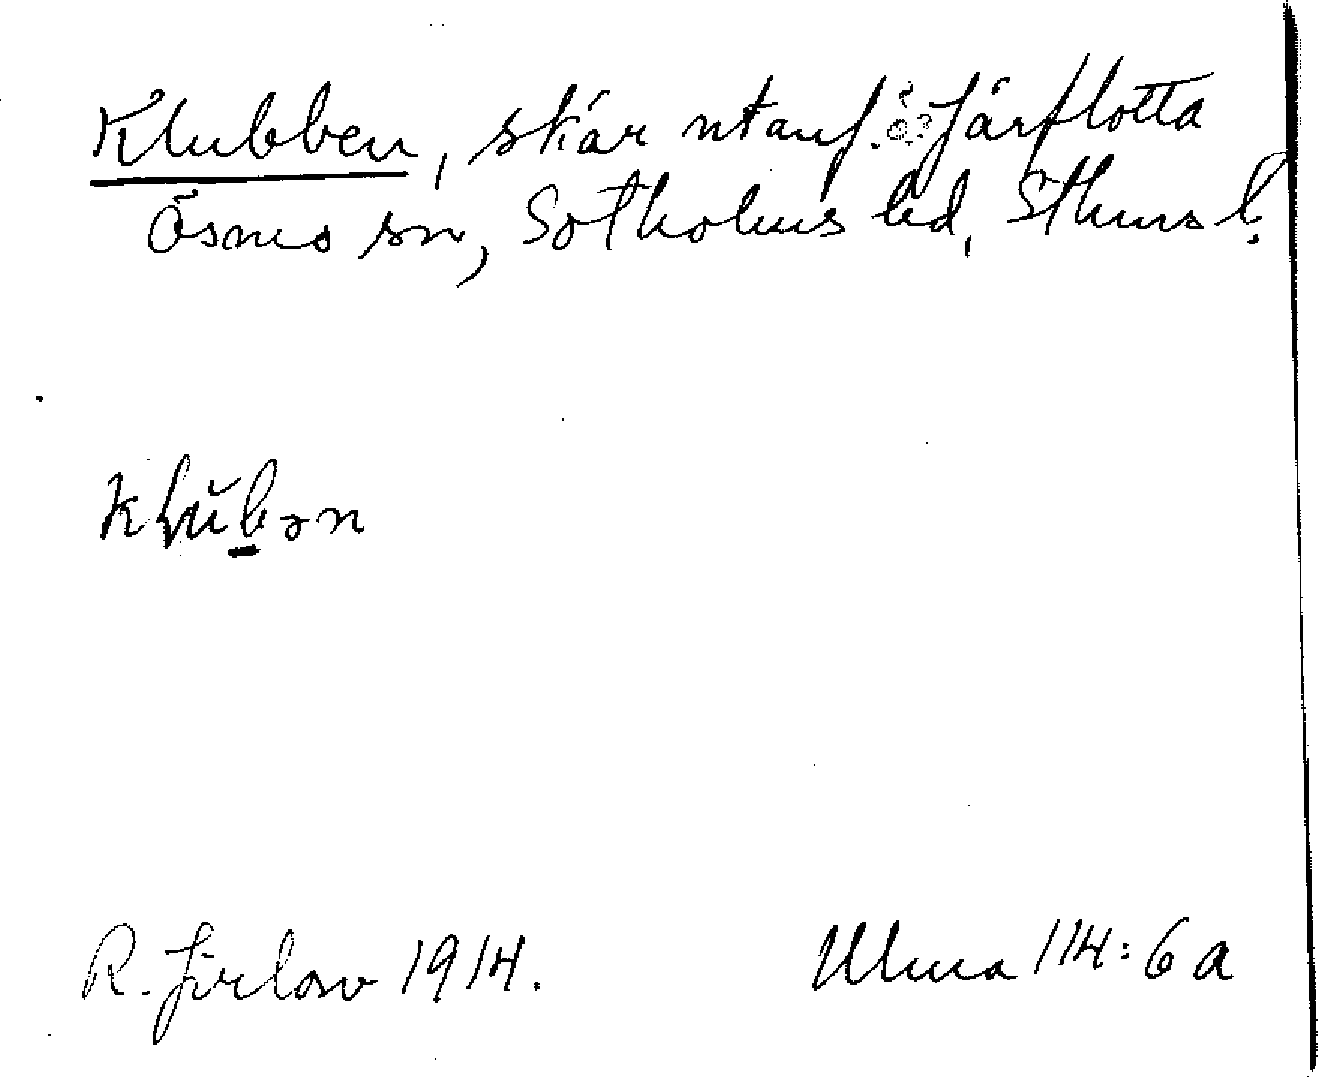 Klubben, skär utanf. Järflotta
Ösmo sn, Sotholms hd, Sthms l.
kłŭbən
R. Jirlow 1914.
Ulma 114:6a